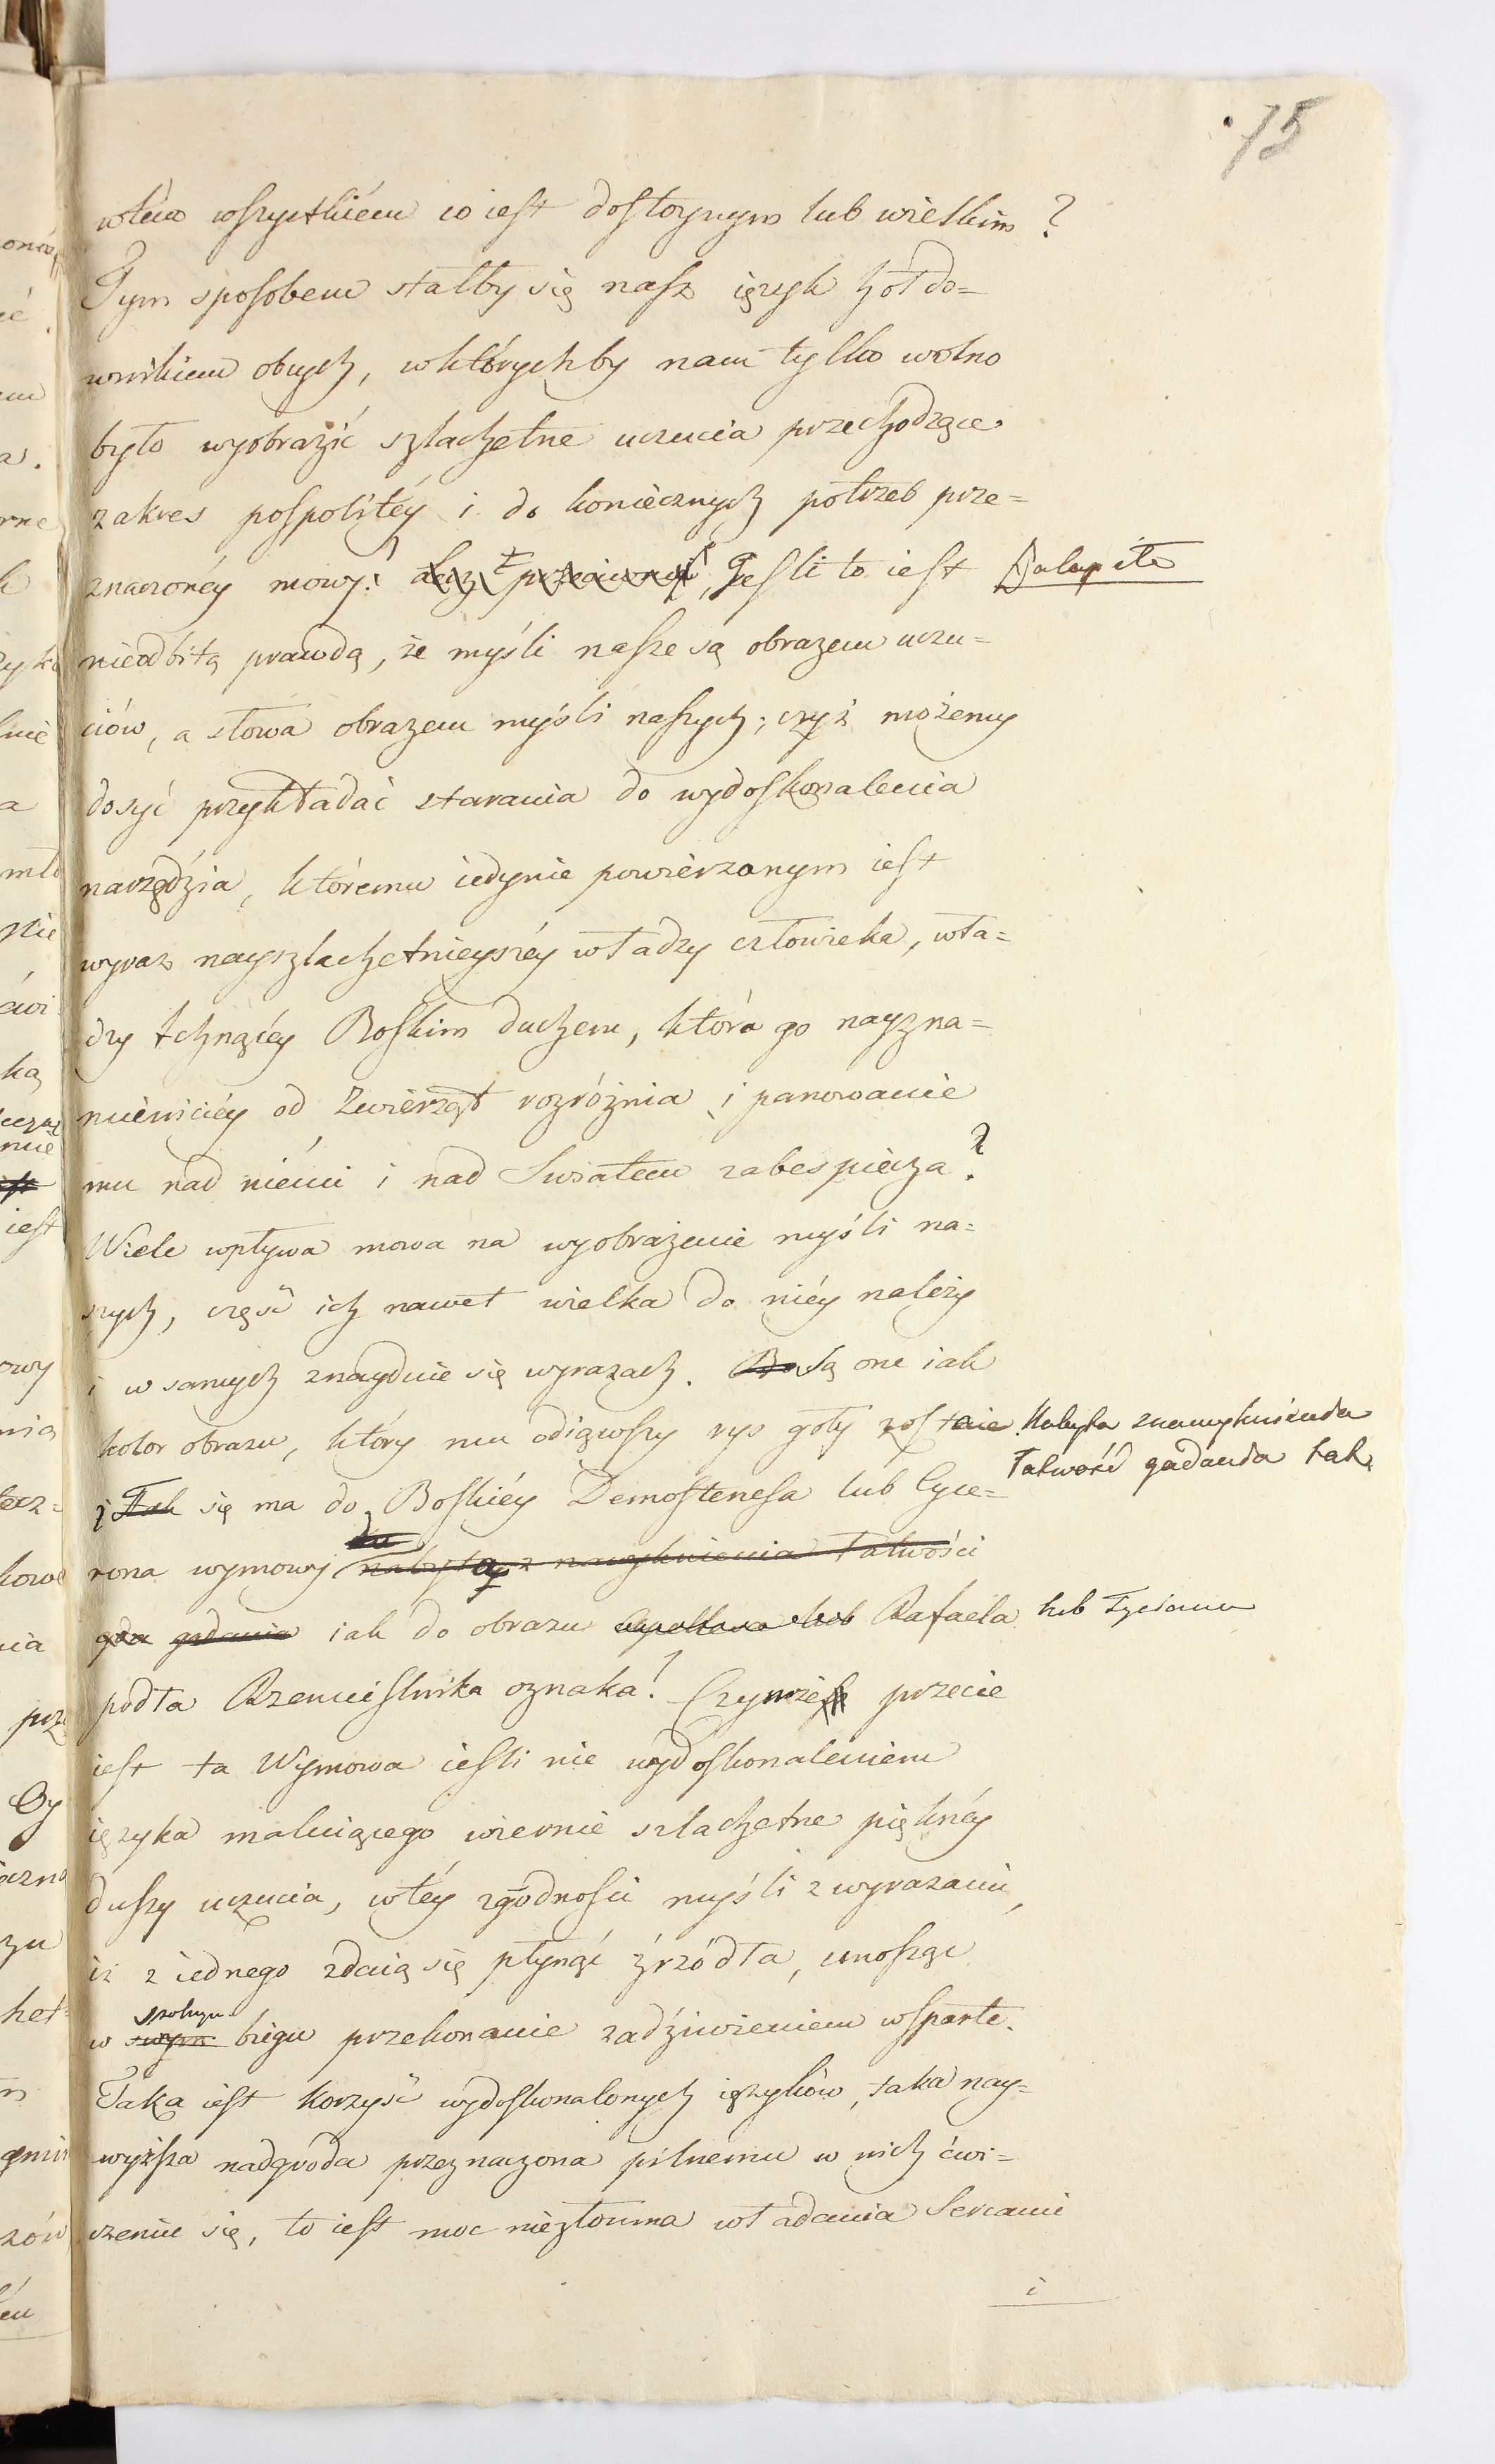 75
wtém wszystkiém co iest dostoynym lub wielkim?
Tym sposobem stałby się nasz ięzyk hołdo=
wnikiem obcych, wktórychby nam tylko wolno
było wyobrazić szlachetne uczucia przechodzące
zakres pospolitéy i do koniecznych potrzeb prze=
znaczonéy mowy! Jeśli to iest
nieodbitą prawdą, że myśli nasze są obrazem uczu=
ciów, a słowa obrazem myśli naszych; czyż możemy
dosyć przykładać starania do wydoskonalenia
narzędzia, któremu iedynie powierzonym iest
wyraz nayszlachetnieyszéy władzy człowieka, wła=
dzy tchnącéy Boskim duchem, która go nayzna=
mieniciéy od Zwierząt rozróżnia i panowanie
mu nad niémi i nad Swiatem zabespiecza?
Wiele wpływa mowa na wyobrażenie myśli na=
szych, część ich nawet wielka do niéy należy
i w samych znayduie się wyrazach. Bo Są one iak
kolor obrazu, który mu odiąwszy rys goły zostaie. Nabyta
łatwość gadania tak
i Tak się ma do Boskiéy Demostenesa lub Cyce=
rona wymowy nabytéy z nawyknienia łatwości
gadania iak do obrazu Apellesa lub Rafaela lub Tyciana
podła Rzemieślnika oznaka! Czymże przecie
iest ta Wymowa ieśli nie wydoskonaleniem
ięzyka maluiącego wiernie szlachetne pięknéy
duszy uczucia, wtéy zgodności myśli z wyrazami,
iż z iednego zdaią się płynąć źrzódła, unosząc
w swym biegu przekonanie zadziwieniem wsparte.
Taka iest korzyść wydoskonalonych ięzyków, taka nay=
wyższa nadgroda przeznaczona pilnemu w nich ćwi=
czeniu się, to iest moc niezłomna władania Sercami
i